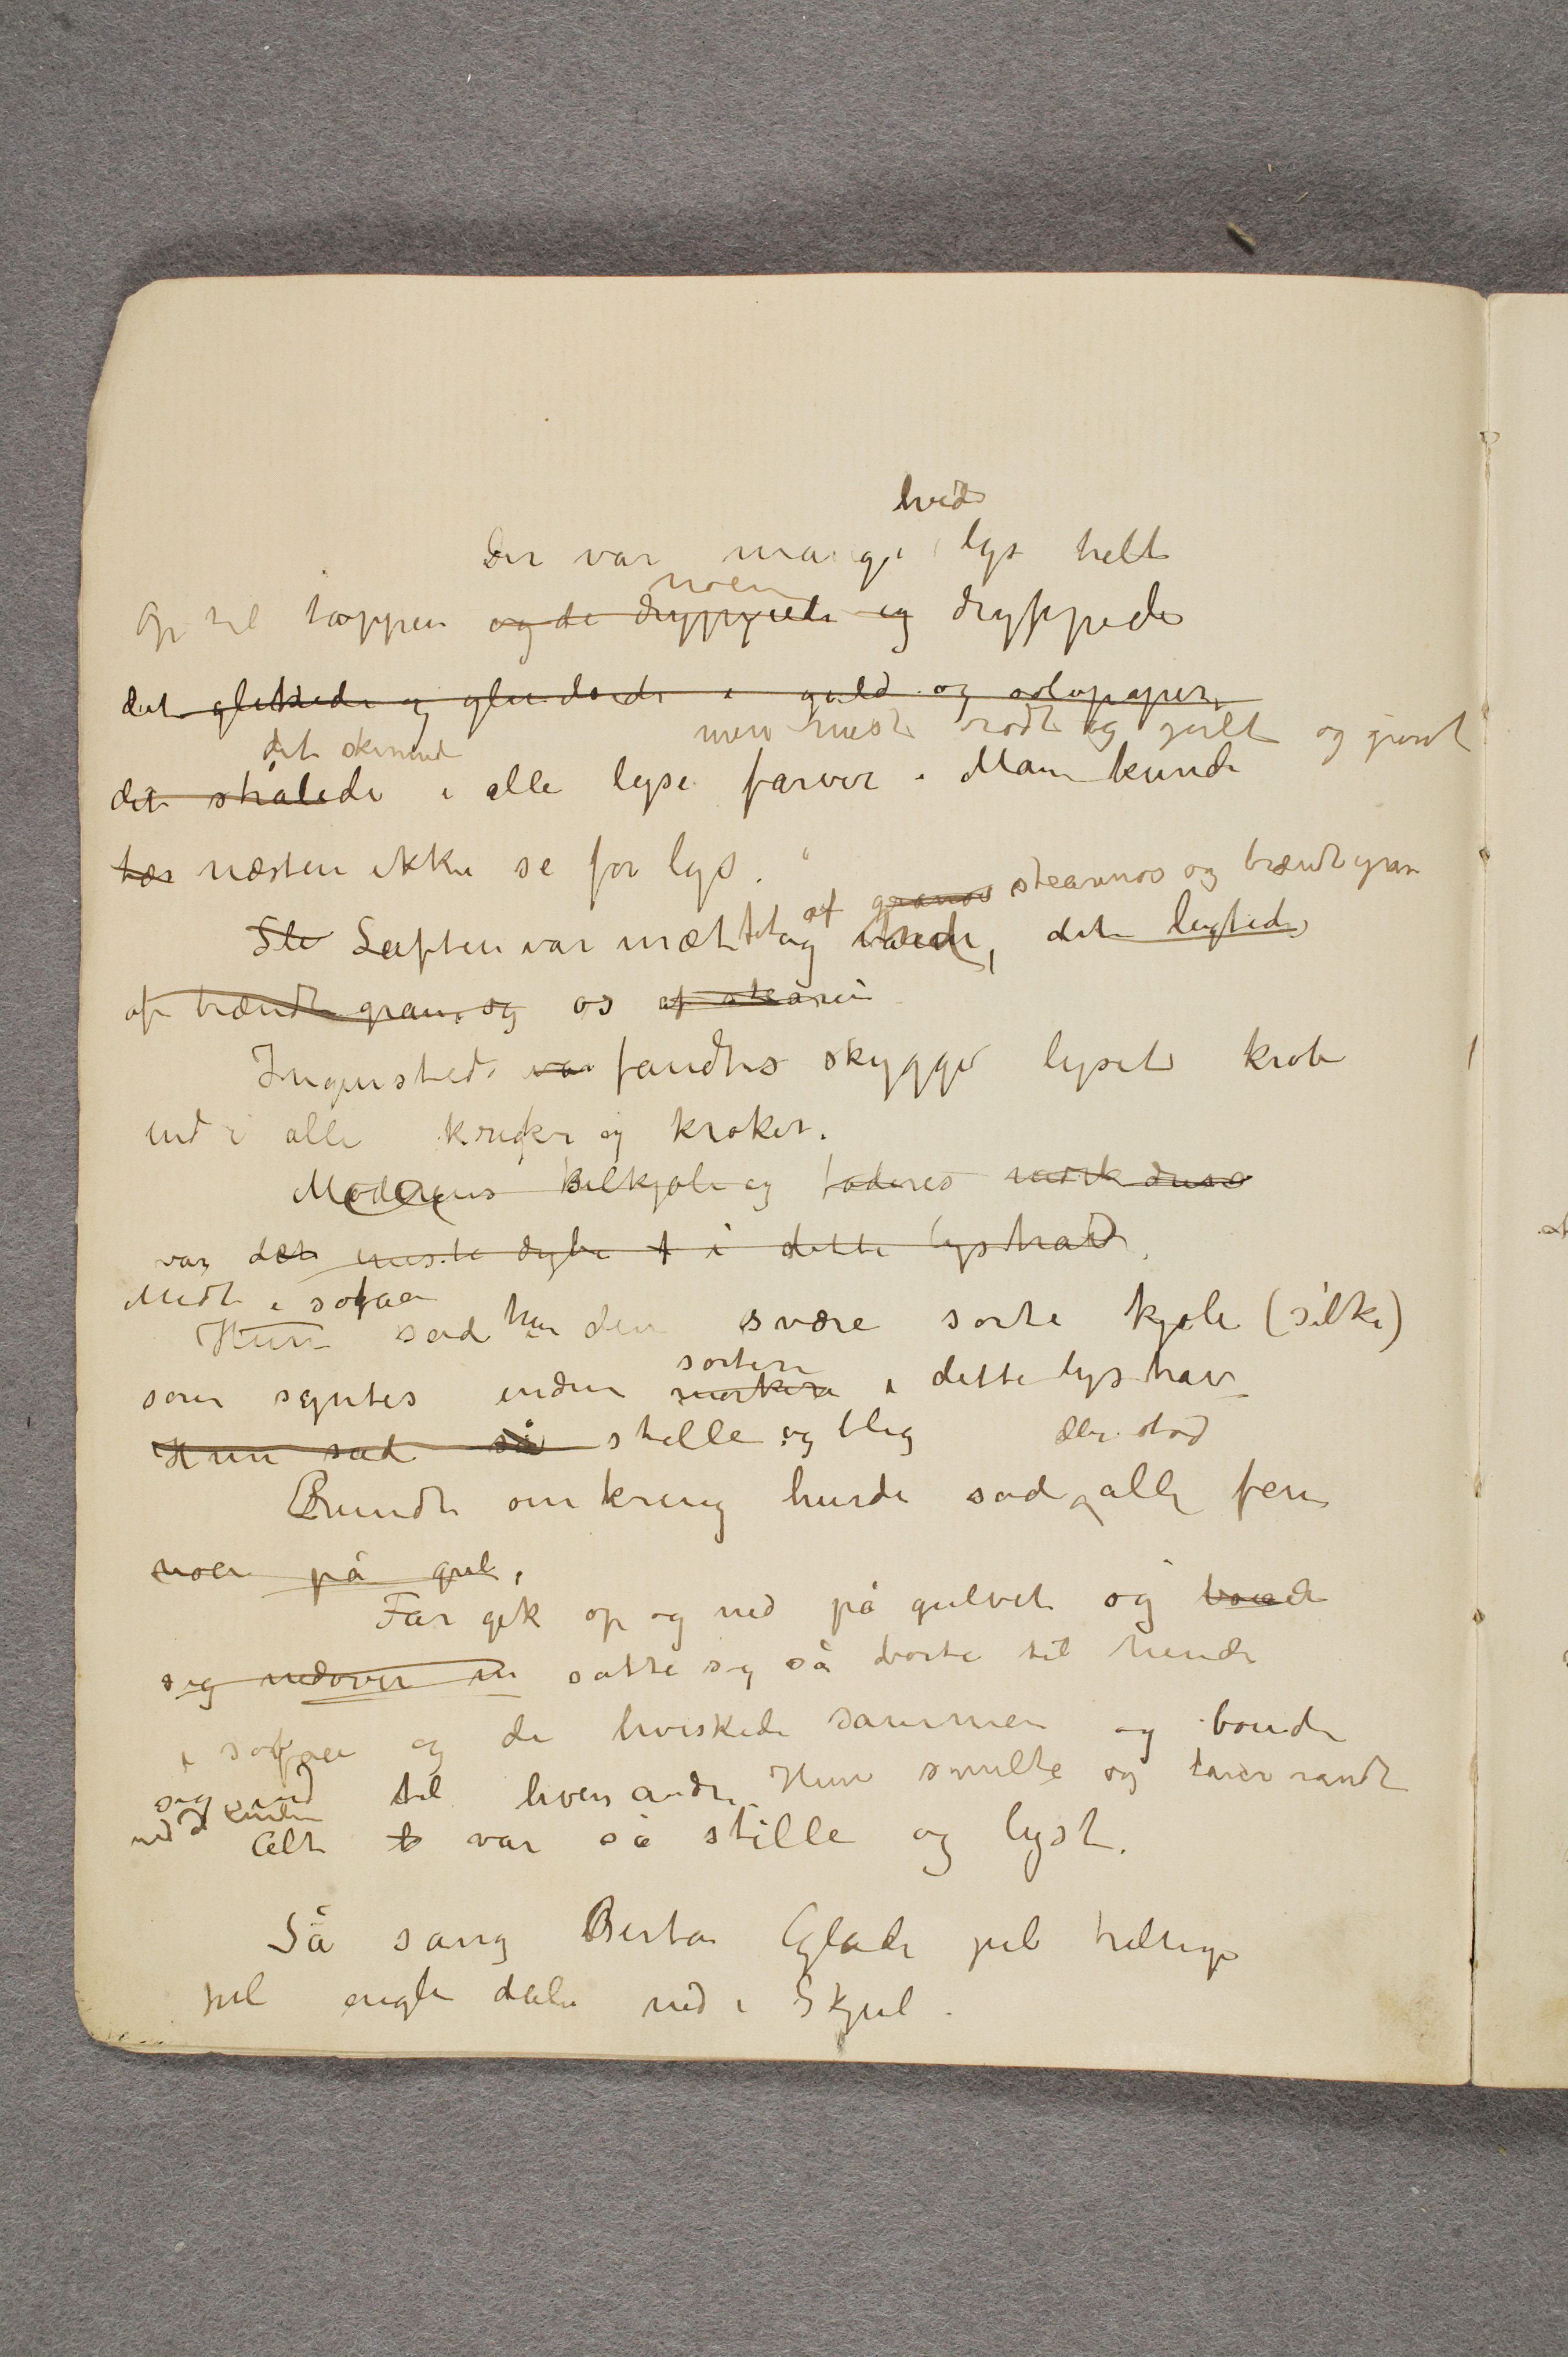 hvide
Der var mange lys helt
op til toppen og de dryppede og dryppede
noen
det glitrede og glindsede i guld og sølvpapir
det skinnede
men mest rødt og gult og grønt
det strålede i alle lyse farver. Man kunde
næsten ikke se for lys.
af granos stearinos og brændt gran
Luften var mættet og varm, det lugtede
af brændt gran og os af stearin
Ingensteds var fandtes skygge lyset krøb
ind i alle kriker og kroker.
Moderens silkjole og faderes mørk
var det meste dybe i dette lyshav
Midt i sofaen
Hun sad hun den svære sorte kjole (silke)
sortere
som syntes endnu mørkere i dette lyshav
Hun sad så stille og bleg
eller stod
Rundt omkring hende sad alle fem
noen på gul.
Far gik op og ned på gulvet og
sig nedover satte sig så borte til hende
i sofaen og de hviskede sammen og bøiede
sig ind til hverandre. Hun smilte og tårer randt
ned af kinden
Alt var så stille og lyst.
Så sang Berta Glade jul hellige
jul engle dale ned i Skjul.